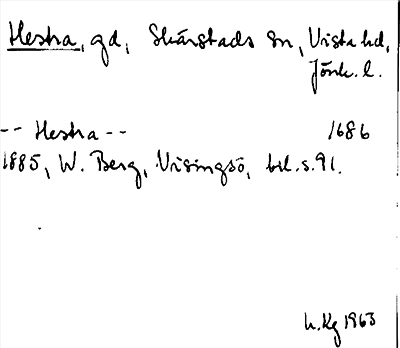 Hestra, gd, Skärstads sn, Vista hd,
Jönk. l.
-- Hestra -- 1686
1885, W. Berg, Visingsö, bil. s. 91.
h. Kg 1963